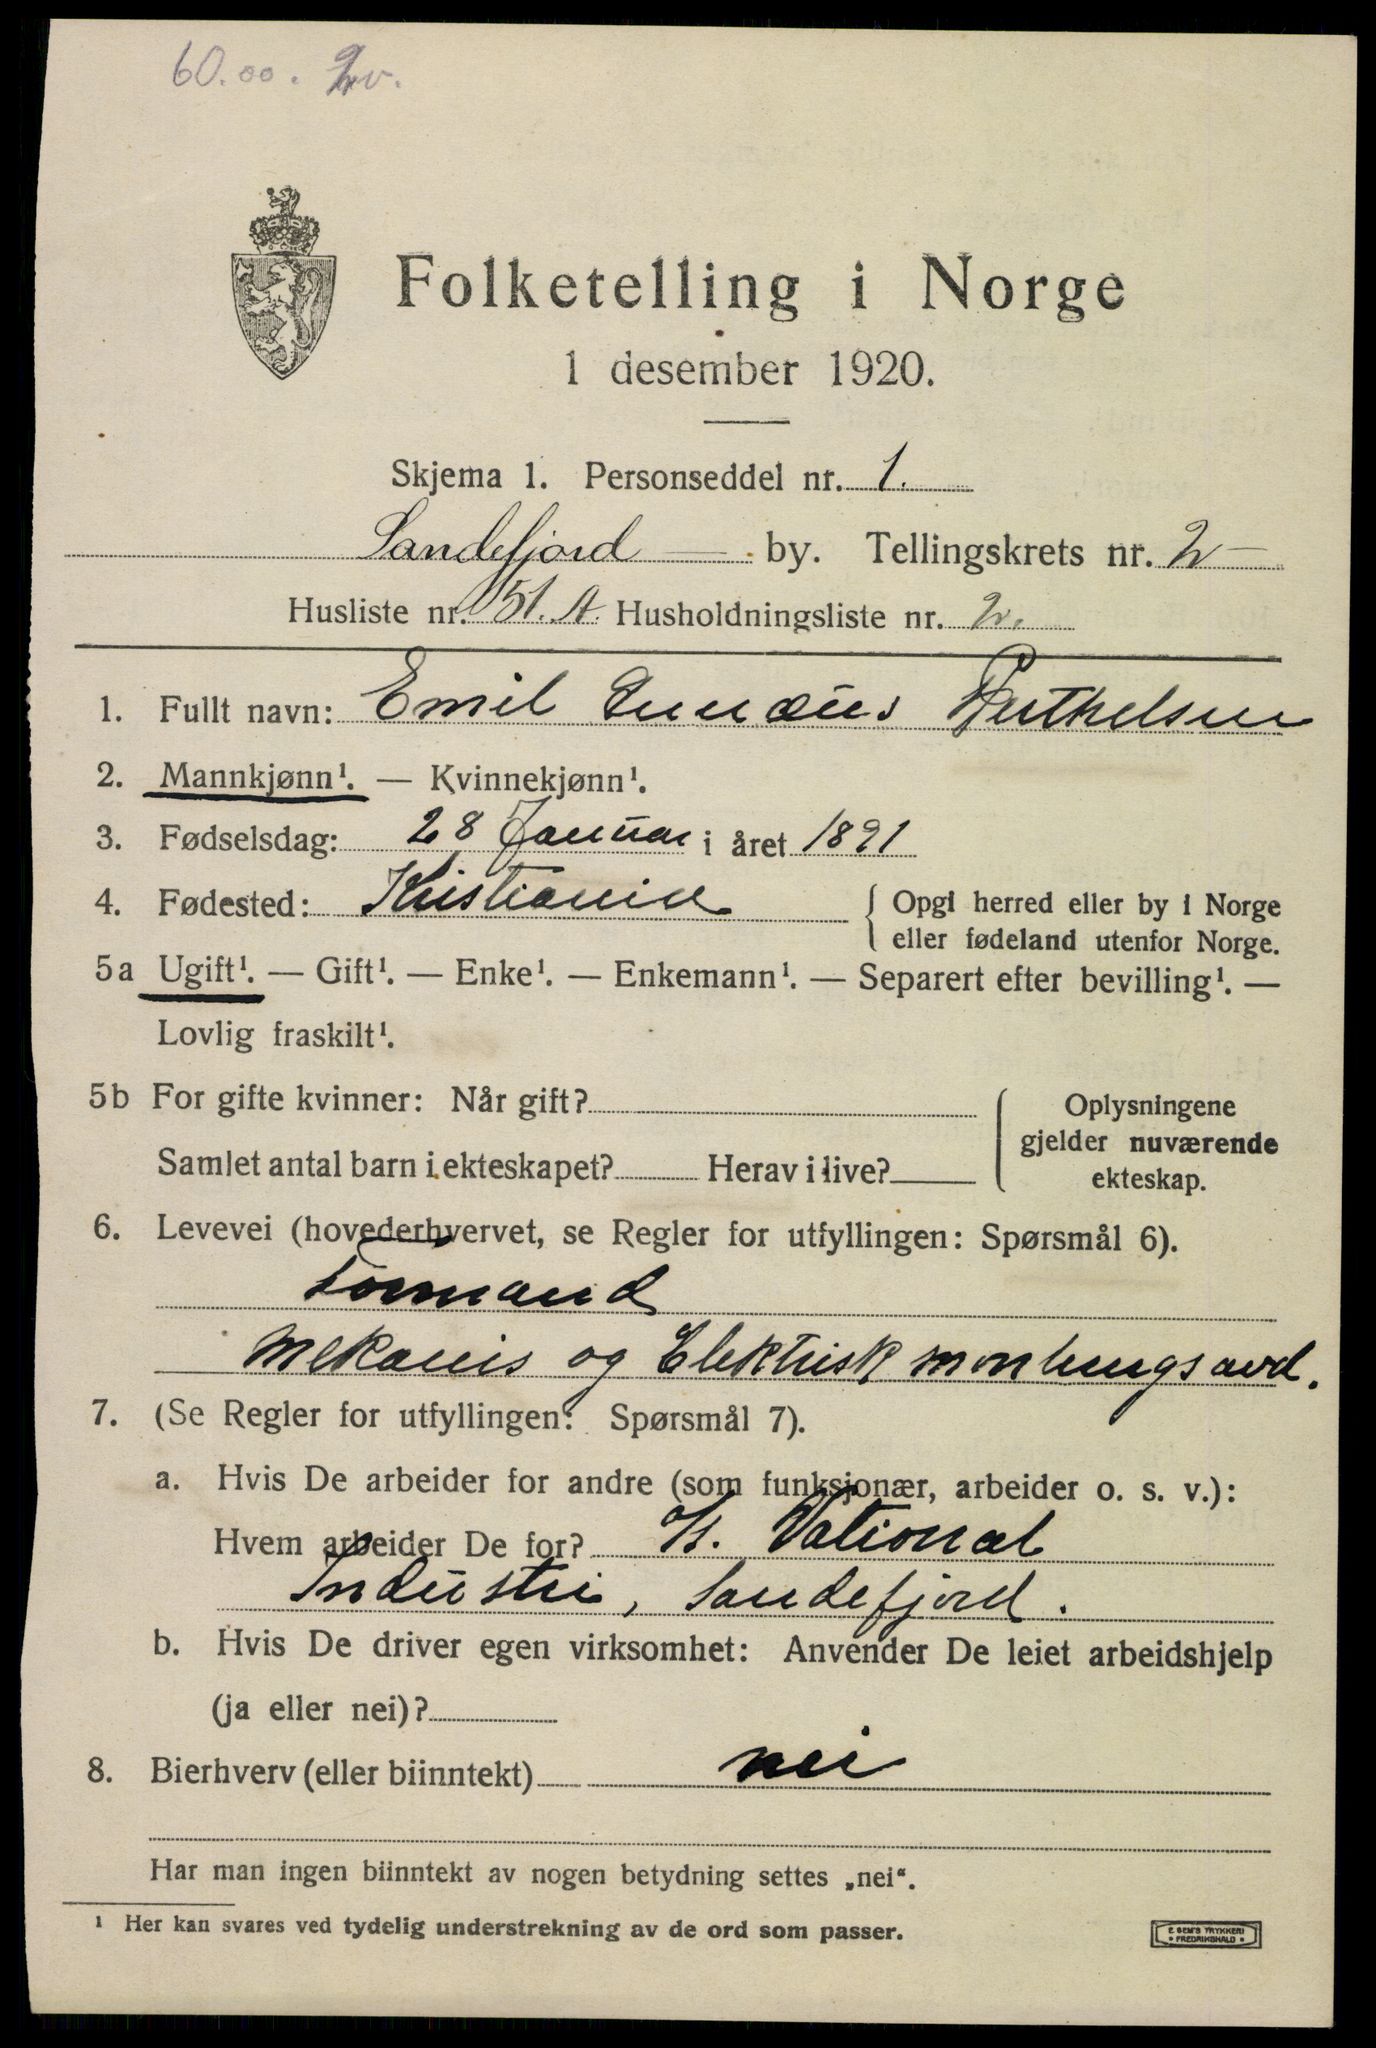 60.00.
Folketelling i Norge
1 desember 1920.
Skjema 1. Personseddel nr. 1.
Sandefjord by. Tellingskrets nr. 2
Husliste nr. 51. A. Husholdningsliste nr. 2.
1. Fullt navn: Emil Berthelsen
2. Mannkjønn¹. — Kvinnekjønn¹.
3. Fødselsdag: 28 Januar i året 1891
4. Fødested: Kristiania { Opgi herred eller by i Norge
eller fødeland utenfor Norge.
5a Ugift¹. — Gift¹. — Enke¹. — Enkemann¹. — Separert efter bevilling¹. —
Lovlig fraskilt¹.
5b For gifte kvinner: Når gift? { Oplysningene
gjelder nuværende
Samlet antal barn i ekteskapet? Herav i live?
ekteskap.
6. Levevei (hovederhvervet, se Regler for utfyllingen: Spørsmål 6).
Formand
Mekanis og Elektrisk montungsavd.
7. (Se Regler for utfyllingen: Spørsmål 7).
a. Hvis De arbeider for andre (som funksjonær, arbeider o. s. v.):
Hvem arbeider De for? National
Industri, Sandefjord.
b. Hvis De driver egen virksomhet: Anvender De leiet arbeidshjelp
(ja eller nei)?
8. Bierhverv (eller biinntekt) nei
Har man ingen biinntekt av nogen betydning settes „nei“.
¹ Her kan svares ved tydelig understrekning av de ord som passer.
E. SEM'S TRYKKERI
FREDRIKSHALD